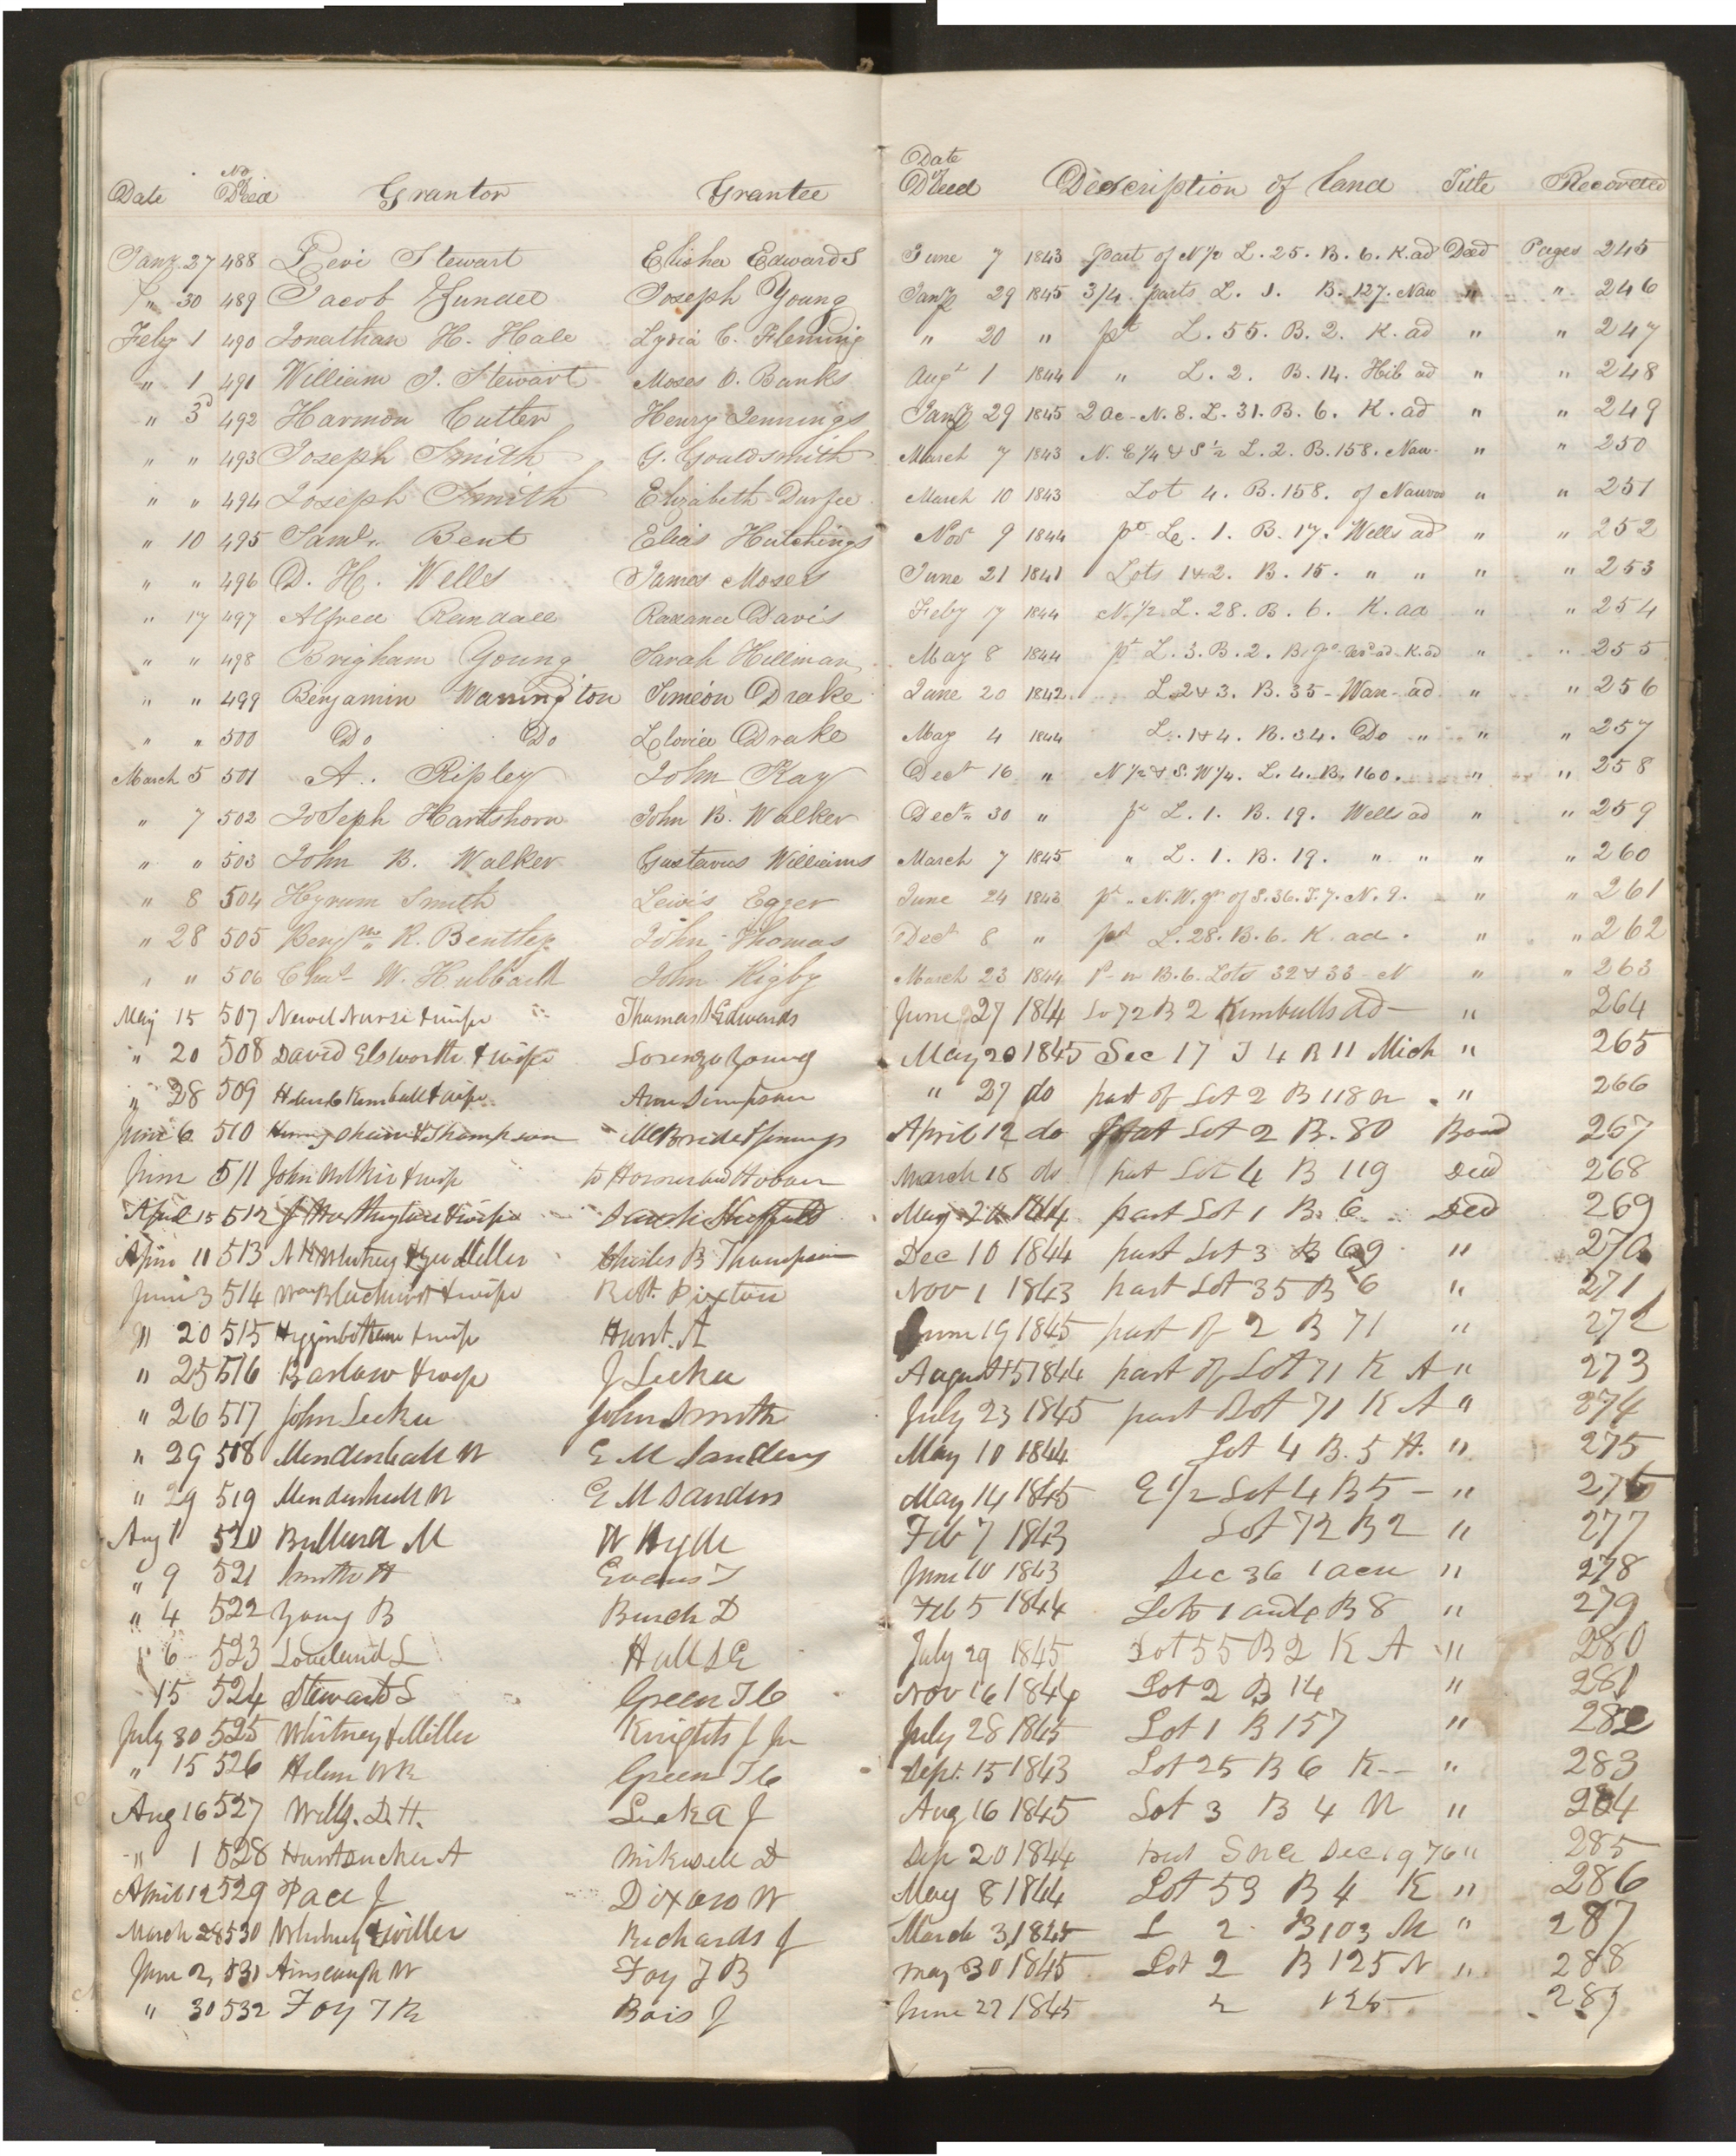 Date No of Deed Grantor Grantee Date of Deed Description of land Title Recorded
Jany 27 488 Levi Stewart Elisha Edwards June 7 1843 part of N ½ L. 25. B. 6. K. ad Deed Pages 245
" 30 489 Jacob Joseph Young Jany 29 1845 3/4 parts L. 1. B. 127. Nau " " 246
Feby 1 490 Jonathan H. Hale Lydia C. Fleming " 20 " pt L. 55. B. 2. K. ad " " 247
" 1 491 William J. Stewart Moses O. Banks Augt 1 1844 " L. 2. B. 14. Hib ad " " 248
" 3d 492 Harmon Cutler Henry Jennings Jany 29 1845 2 ac - N. 8. L. 31. B. 6. K. ad " " 249
" " 493 Joseph Smith G. Gouldsmith March 7 1843 N. E ¼ & S ½ L. 2. B. 158. Nau - " " 250
" " 494 Joseph Smith Elizabeth Durfee March 10 1843 Lot 4. B. 158. of Nauvoo " " 251
" 10 495 Saml. Bent Elias Hutchings Nov 9 1844 pt L. 1. B. 17. Wells ad " " 252
" " 496 D. H. Wells James Moses June 21 1841 Lots 1 & 2. B. 15. " " " " 253
" 17 497 Alfred Randall Roxana Davis Feby 17 1844 N. ½ L. 28. B. 6. K. ad " " 254
" " 498 Brigham Young Sarah Hillman May 8 1844 pt L. 3. B. 2. K. ad " " 255
" " 499 Benjamin Warrington Simeon Drake June 20 1842 L. 2 & 3. B. 35 - Warr - ad " " 256
" " 500 Do Do Drake May 4 1844 L. 1 & 4. B. 34. Do " " " 257
March 5 501 A. Ripley John Kay Dect 16 " N ½ & S. W ¼. L. 4. B. 160. " " 258
" 7 502 Joseph Hartshorn John B. Walker Dect 30 " pt L. 1. B. 19. Wells ad " " 259
" " 503 John B. Walker Gustavus Williams March 7 1845 " L. 1. B. 19. " " " " 260
" 8 504 Hyrum Smith Lewis Egger June 24 1843 pt " N. W. qr of S. 36. T. 7. N. 9. " " 261
" 28 505 Benjmn R. Bentley John Thomas Dect 8 " pt L. 28. B. 6. K. ad. " " 262
" " 506 Chas W. Hubbard John Rigby March 23 1844 B. 6. Lots 32 & 33 - N " " 263
May 15 507 Newel Nurse & wife Thomas Edwards June 27 1844 Lo 72 B 2 Kimballs ad - " 264
" 20 508 David Elsworth & wife Lorenzo Young May 20 1845 Sec 17 T 4 R 11 Mich " 265
" 28 509 Heber C Kimball & wife Ann Simpson " 27 do part of Lot 2 B 118 N " 266
June 6 510 & Thompson McBride & Jennings April 12 do Lot 2 B. 80 Bond 267
June 511 John & wife to March 18 do part Lot 4 B 119 Deed 268
April 15 512 & wife Sarah May 1844 part Lot 1 B. 6 Deed 269
April 11 513 N K Whitney & Geo Miller Charles B Thompson Dec 10 1844 part Lot 3 B 69 " 270
June 3 514 Wm Blackhurst & wife Robt. Pixton Nov 1 1843 part Lot 35 B 6 " 271
" 20 515 Higginbotham & wife Hunt. A June 19 1845 part of 2 B 71 " 272
" 25 516 Barlow & wife J Leeka August 15 1844 part of Lot 71 K A " 273
" 26 517 John Leeka John Smith July 23 1845 part Lot 71 K A " 274
" 29 518 Mendenhall W E M Sanders May 10 1844 Lot 4 B. 5 H. " 275
" 29 519 Mendenhall W E M Sanders May 14 1845 E 1/2 Lot 4 B 5 - " 276
Aug 1 520 Bullard M W Hyde Feb 7 1843 Lot 72 B 2 " 277
" 9 521 Smith H Evans T June 10 1843 Sec 36 1 acre " 278
" 4 522 Young B Burch D Feb 5 1844 Lots 1 and B 8 " 279
" 6 523 Loveland L Hall S E July 29 1845 Lot 55 B 2 K A " 280
15 524 Stewart L Green T C Nov 16 1844 Lot 2 B 14 " 281
July 30 525 Whitney & Miller Knights J Jn July 28 1845 Lot 1 B 157 " 282
" 15 526 Helm W R Green T C Sept. 15 1843 Lot 25 B 6 K -- " 283
Aug 16 527 Wells. D. H. Leeka J Aug 16 1845 Lot 3 B 4 N " 284
" 1 528 Huntsucker A Mikesell D Sep 20 1844 Sec 19 " 285
April 12 529 Pace J Dixon W May 8 1844 Lot 53 B 4 K " 286
March 28 530 Whitney & Miller Richards J March 3, 1845 L 2 B 103 N " 287
June 2, 531 Ainscough W Foy T B May 30 1845 Lot 2 B 125 N " 288
" 30 532 Foy T B Bois J June 27 1845 2 125 289